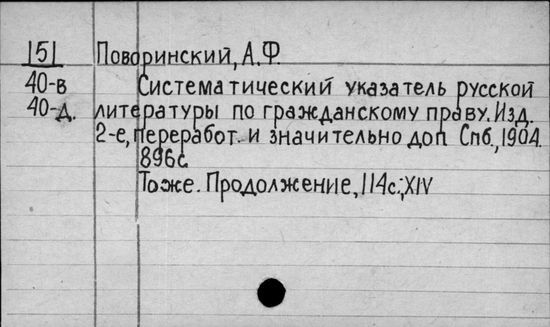 151 Поворинский, А.Ф.
40-в Систематический указатель русской
40-д. литературы по гражданскому праву. Изд.
2-е, переработ. и значительно доп. Спб., 1904.
896с.
Тоже. Продолжение, 114с.; XIV